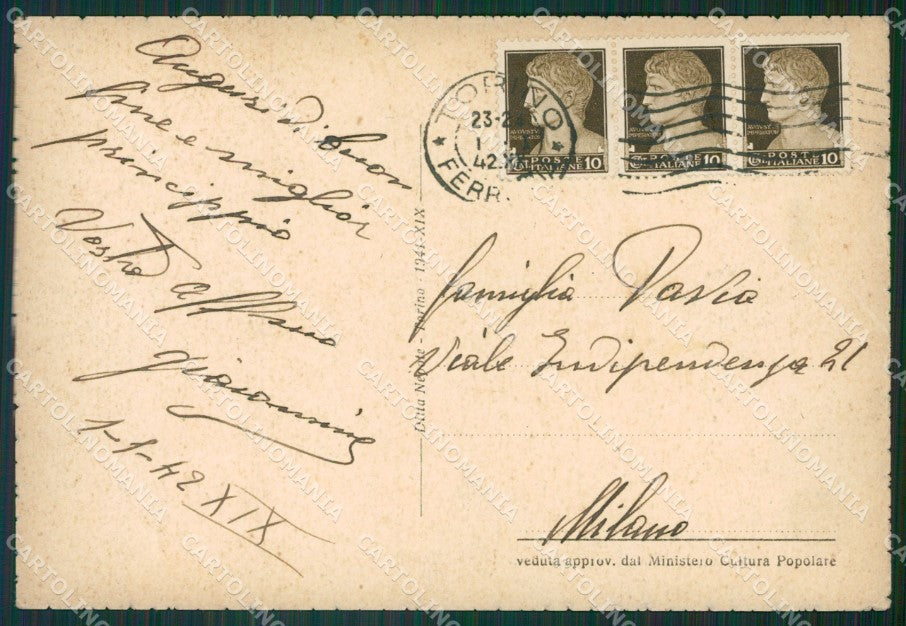 Auguri di buon
fine e miglior
principio
Vostro aff.mo
1-1-42 XIX
Ditta Ne - Torino - 1941-XIX
TORINO
23-2
1
42 X
FERR.
AVGVSTVS
IMPERATOR
POSTE
ITALIANE 10
POSTE
ITALIANE 10
AVGVSTVS
IMPERATOR
POSTE
ITALIANE 10
famiglia Pavia
Viale Indipendenza 21
Milano
veduta approv. dal Ministero Cultura Popolare
CARTOLINOMANIA